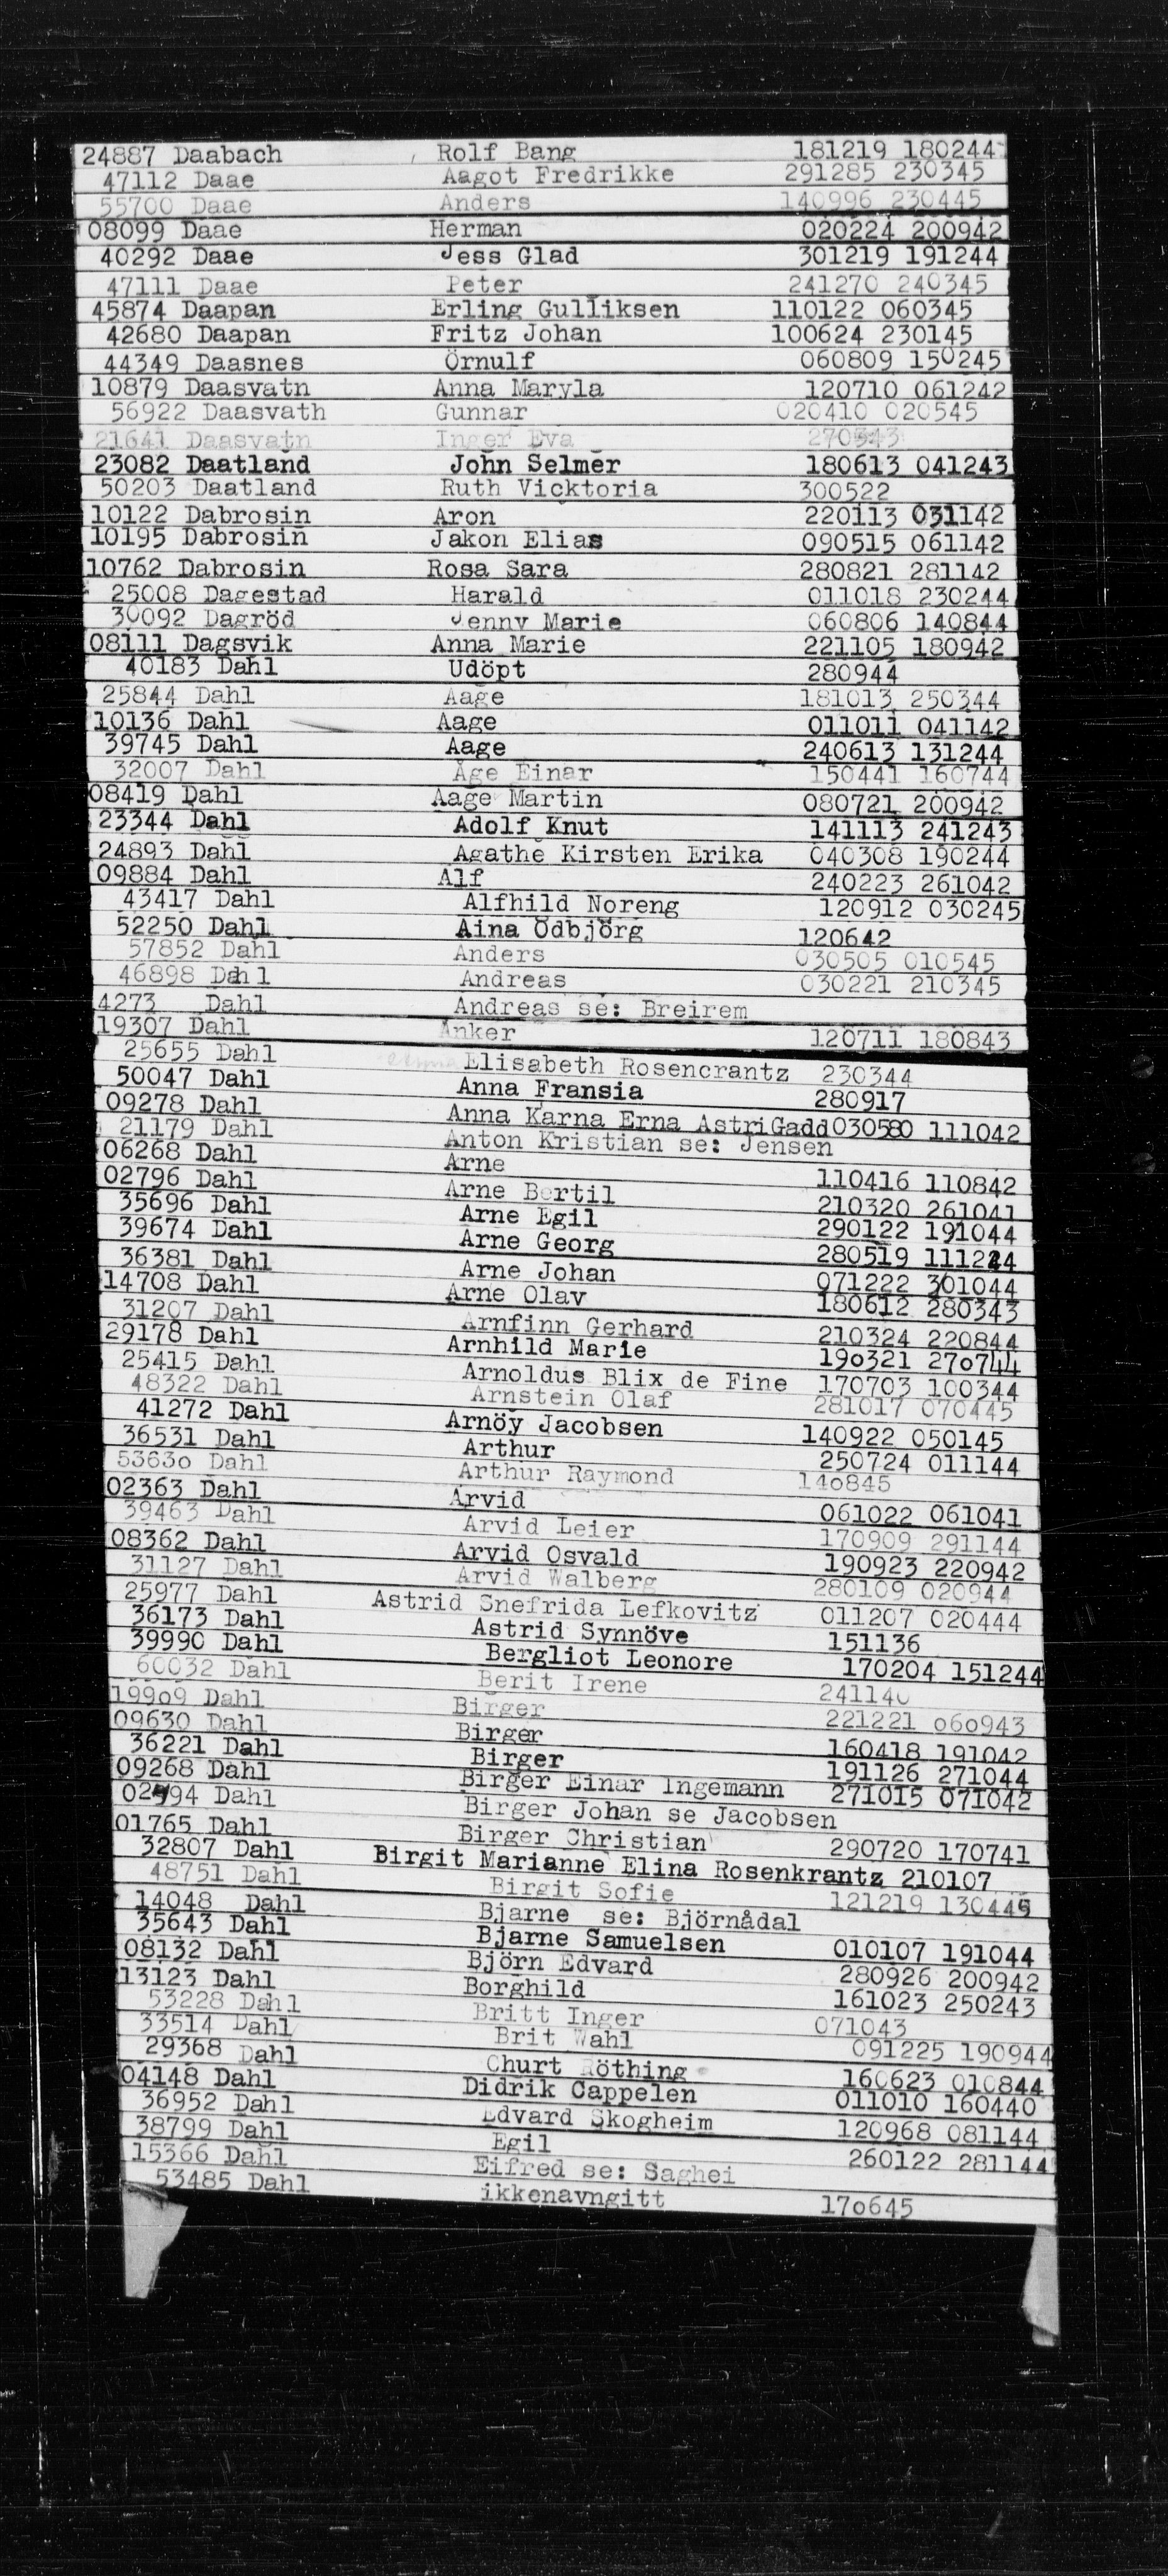 24887 Daabach Rolf Bang 181219 180244
47112 Daae Aagot Fredrikke 291285 230345
55700 Daae Anders 140996 230445
08099 Daae Herman 020224 200942
40292 Daae Jess Glad 301219 191244
47111 Daae Peter 241270 240345
45874 Daapan Erling Gulliksen 110122 060345
42680 Daapan Fritz Johan 100624 230145
44349 Daasnes Örnulf 060809 150245
10879 Daasvatn Anna Maryla 120710 061242
56922 Daasvath Gunnar 020410 020545
21641 Daasvatn Inger Eva 270543
23082 Daatland John Selmer 180613 041243
50203 Daatland Ruth Vicktoria 300522
10122 Dabrosin Aron 220113 031142
10195 Dabrosin Jakon Elias 090515 061142
10762 Dabrosin Rosa Sara 280821 281142
25008 Dagestad Harald 011018 230244
30092 Dagröd Jenny Marie 060806 140844
08111 Dagsvik Anna Marie 221105 180942
40183 Dahl Udöpt 280944
25844 Dahl Aage 181013 250344
10136 Dahl Aage 011011 041142
39745 Dahl Aage 240613 131244
32007 Dahl Åge Einar 150441 160744
08419 Dahl Aage Martin 080721 200942
23344 Dahl Adolf Knut 141113 241243
24893 Dahl Agathe Kirsten Erika 040308 190244
09884 Dahl Alf 240223 261042
43417 Dahl Alfhild Noreng 120912 030245
52250 Dahl Aina Odbjörg 120642
57852 Dahl Anders 030505 010545
46898 Dahl Andreas 030221 210345
4273 Dahl Andreas se: Breirem
19307 Dahl Anker 120711 180843
25655 Dahl Elisabeth Rosencrantz 230344
50047 Dahl Anna Fransia 280917
09278 Dahl Anna Karna Erna AstriGadd 030580 111042
21179 Dahl Anton Kristian se: Jensen
06268 Dahl Arne 110416 110842
02796 Dahl Arne Bertil 210320 261041
35696 Dahl Arne Egil 290122 191044
39674 Dahl Arne Georg 280519 111244
36381 Dahl Arne Johan 071222 301044
14708 Dahl Arne Olav 180612 280343
31207 Dahl Arnfinn Gerhard 210324 220844
29178 Dahl Arnhild Marie 190321 270744
25415 Dahl Arnoldus Blix de Fine 170703 100344
48322 Dahl Arnstein Olaf 281017 070445
41272 Dahl Arnöy Jacobsen 140922 050145
36531 Dahl Arthur 250724 011144
53630 Dahl Arthur Raymond 140845
02363 Dahl Arvid 061022 061041
39463 Dahl Arvid Leier 170909 291144
08362 Dahl Arvid Osvald 190923 220942
31127 Dahl Arvid Walberg 280109 020944
25977 Dahl Astrid Snefrida Lefkovitz 011207 020444
36173 Dahl Astrid Synnöve 151136
39990 Dahl Bergliot Leonore 170204 151244
60032 Dahl Berit Irene 241140
19909 Dahl Birger 221221 060943
09630 Dahl Birger 160418 191042
36221 Dahl Birger 191126 271044
09268 Dahl Birger Einar Ingemann 271015 071042
Dahl Birger Johan se Jacobsen
01765 Dahl Birger Christian 290720 170741
32807 Dahl Birgit Marianne Elina Rosenkrantz 210107
48751 Dahl Birgit Sofie 121219 130445
14048 Dahl Bjarne se: Björnådal
35643 Dahl Bjarne Samuelsen 010107 191044
08132 Dahl Björn Edvard 280926 200942
13123 Dahl Borghild 161023 250243
53228 Dahl Britt Inger 071043
33514 Dahl Brit Wahl 091225 190944
29368 Dahl Churt Röthing 160623 010844
04148 Dahl Didrik Cappelen 011010 160440
36952 Dahl Edvard Skogheim 120968 081144
38799 Dahl Egil 260122 281144
15366 Dahl Eifred se: Saghei
53485 Dahl ikkenavngitt 170645